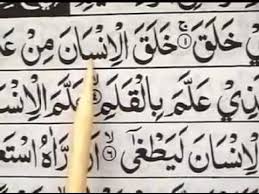 ي خَلَقَ ۝١ خَلَقَ الْاِنْسَانَ مِنْ عَلَ
ذِي عَلَّمَ بِالْقَلَمِ ۝٤ عَلَّمَ الْاِنْسَ
الْاِنْسَانَ لَيَطْغٰى ۝٦ اَنْ رَّاٰهُ اسْتَغْ